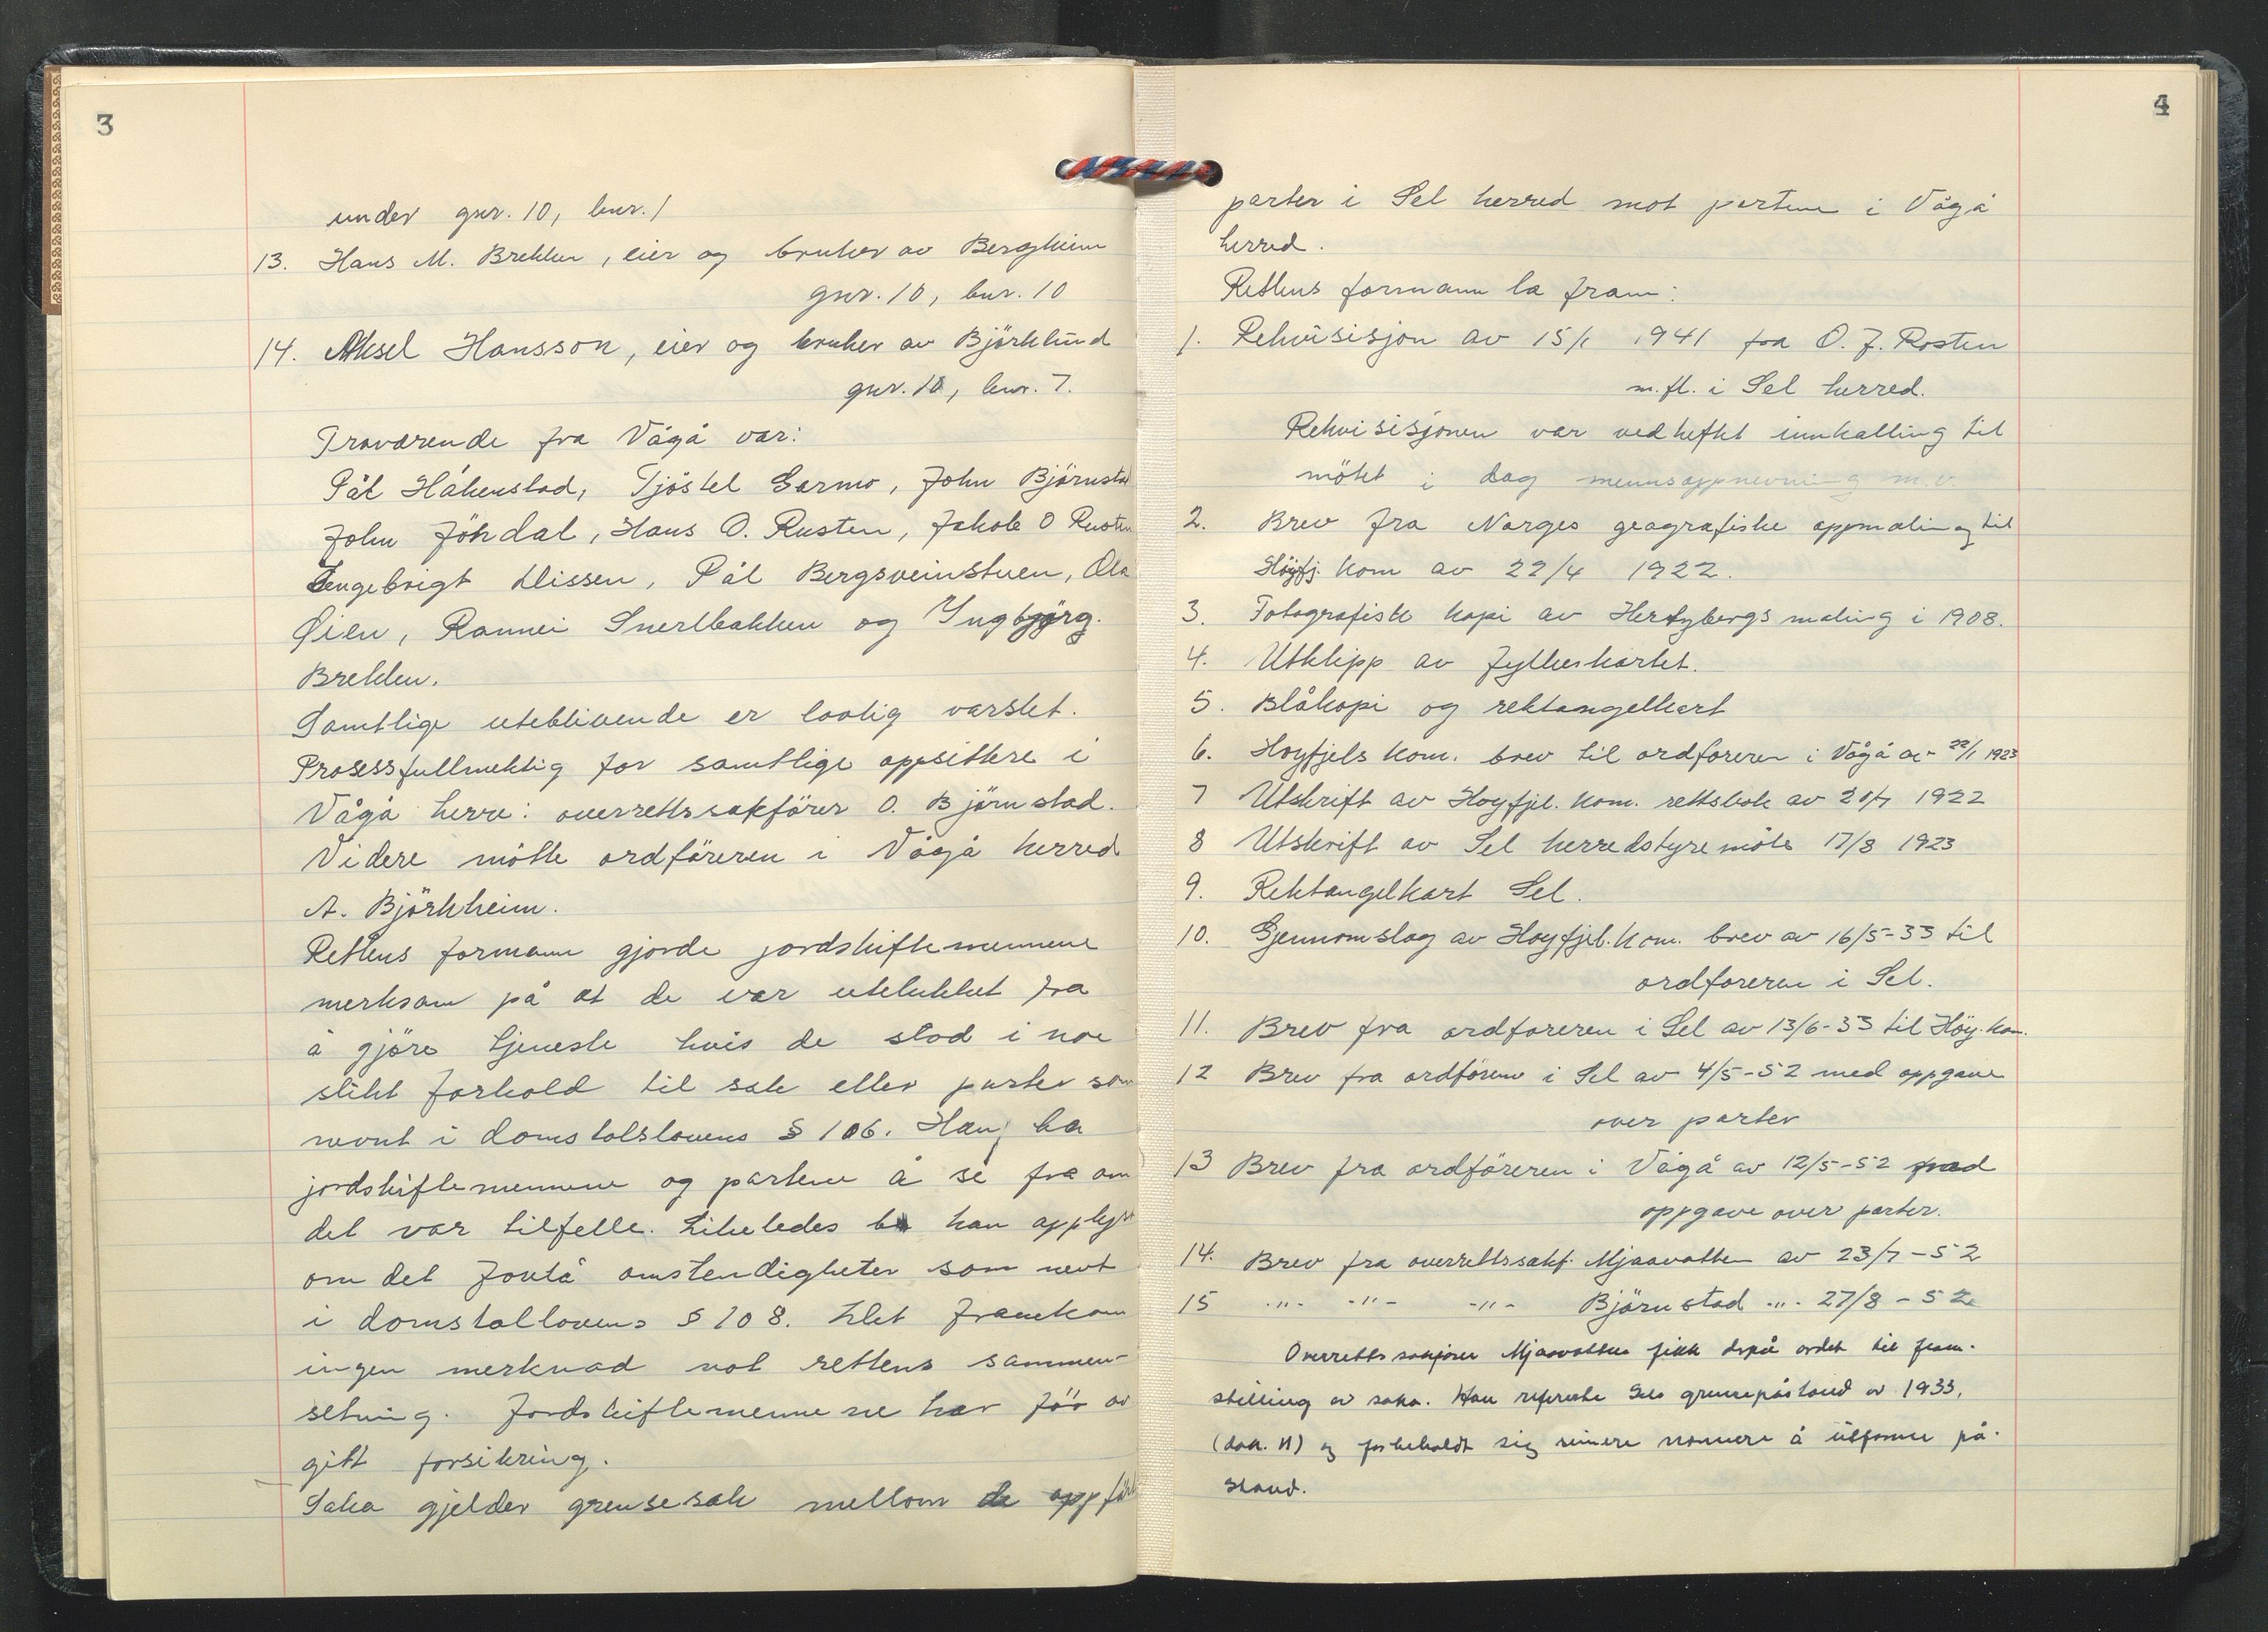 3
under gnr. 10, bnr. 1
13. Hans M. Brekken, eier og bruker av Bergheim
gnr. 10, bnr. 10
14. Aksel Hansson, eier og bruker av Björklund
gnr. 10, bnr. 7.
Fraværende fra Vågå var:
Pål Håkenstad, Tjöstel Garmo, John Björnstad
John Jöndal, Hans O. Rusten, Jakob O Rusten
Engebrigt Nissen, Pål Bergsveinstuen, Ola
Øien, Rannei Snerlbakken og Yngbjörg.
Brekken.
Samtlige uteblivende er lovlig varslet.
Prosessfullmektig for samtlige oppsittere i
Vågå herre: overrettssakförer O. Björnstad.
Videre mötte ordföreren i Vågå herred
A. Björkheim.
Rettens formann gjorde jordskiftemennene
merksam på at de var utelukket fra
å gjöre tjeneste hvis de stod i noe
slikt forhold til sak eller parter som
nevnt i domstolslovens § 106. Han ba
jordskiftemennene og partene å se fra om
det var tilfelle. Likeledes ba han opplyst
om det forelå omstendigheter som nevt
i domstollovens § 108. Det framkom
ingen merknad mot rettens sammen-
setning. Jordskiftemennene har för av
gitt forsikring.
Saka gjelder grensesak mellom de oppförte
4
parter i Sel herred mot partene i Vågå
herred.
Rettens formann la fram:
1. Rekvisisjon av 15/1 1941 fra O. J. Rosten
m.fl. i Sel herred.
Rekvisisjonen var vedheftet innkalling til
mötet i dag mennsoppnevning m.v.
2. Brev fra Norges geografiske oppmaling til
Höyfj. kom av 22/4 1922.
3. Fotografisk kopi av Hertzbergs maling i 1908.
4. Utklipp av fylkeskartet.
5. Blåkopi og rektangelkart
6. Hoyfjels kom. brev til ordforeren i Vågå av 22/1 1923
7 Utskrift av Hoyfjel. kom. rettsbok av 20/7 1922
8 Utskrift av Sel herredstyremöte 17/8 1923
9. Rektangelkart Sel.
10. Gjennomslag av Hoyfjel. kom. brev av 16/5-33 til
ordforeren i Sel.
11. Brev fra ordforeren i Sel av 13/6-33 til Höy. kom.
12 Brev fra ordföreren i Sel av 4/5-52 med oppgave
over parter
13 Brev fra ordföreren i Vågå av 12/5-52 med
oppgave over parter.
14. Brev fra overrettssakf. Mjaavatten av 23/7-52
15 -"- -"- -"- Björnstad -"- 27/8-52
Overrettssakförer Mjaavatten fikk derpå ordet til fram-
stilling av saka. Han refererte Sels grensepåstand av 1933,
(dok. 11) og forbeholdt sig seinere nærmere å utforme på-
stand.